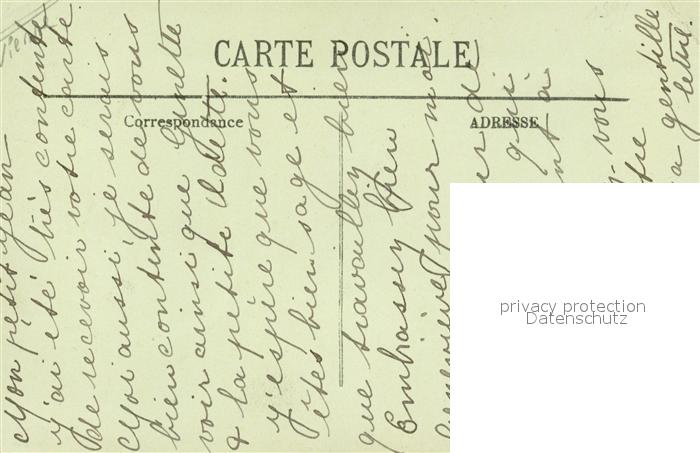 CARTE POSTALE
Correspondance
ADRESSE
Mon petit Jean
j'ai été très contente
de recevoir votre carte.
Moi aussi je serais
bien contente de vous
voir ainsi que Ginette
& la petite Odette.
j'espère que vous
êtes bien sage et
que travaillez bien
Embrassez bien
Geneviève pour moi.
er de
qui
nt a
vous
tre
a gentille
lettre.
privacy protection
Datenschutz